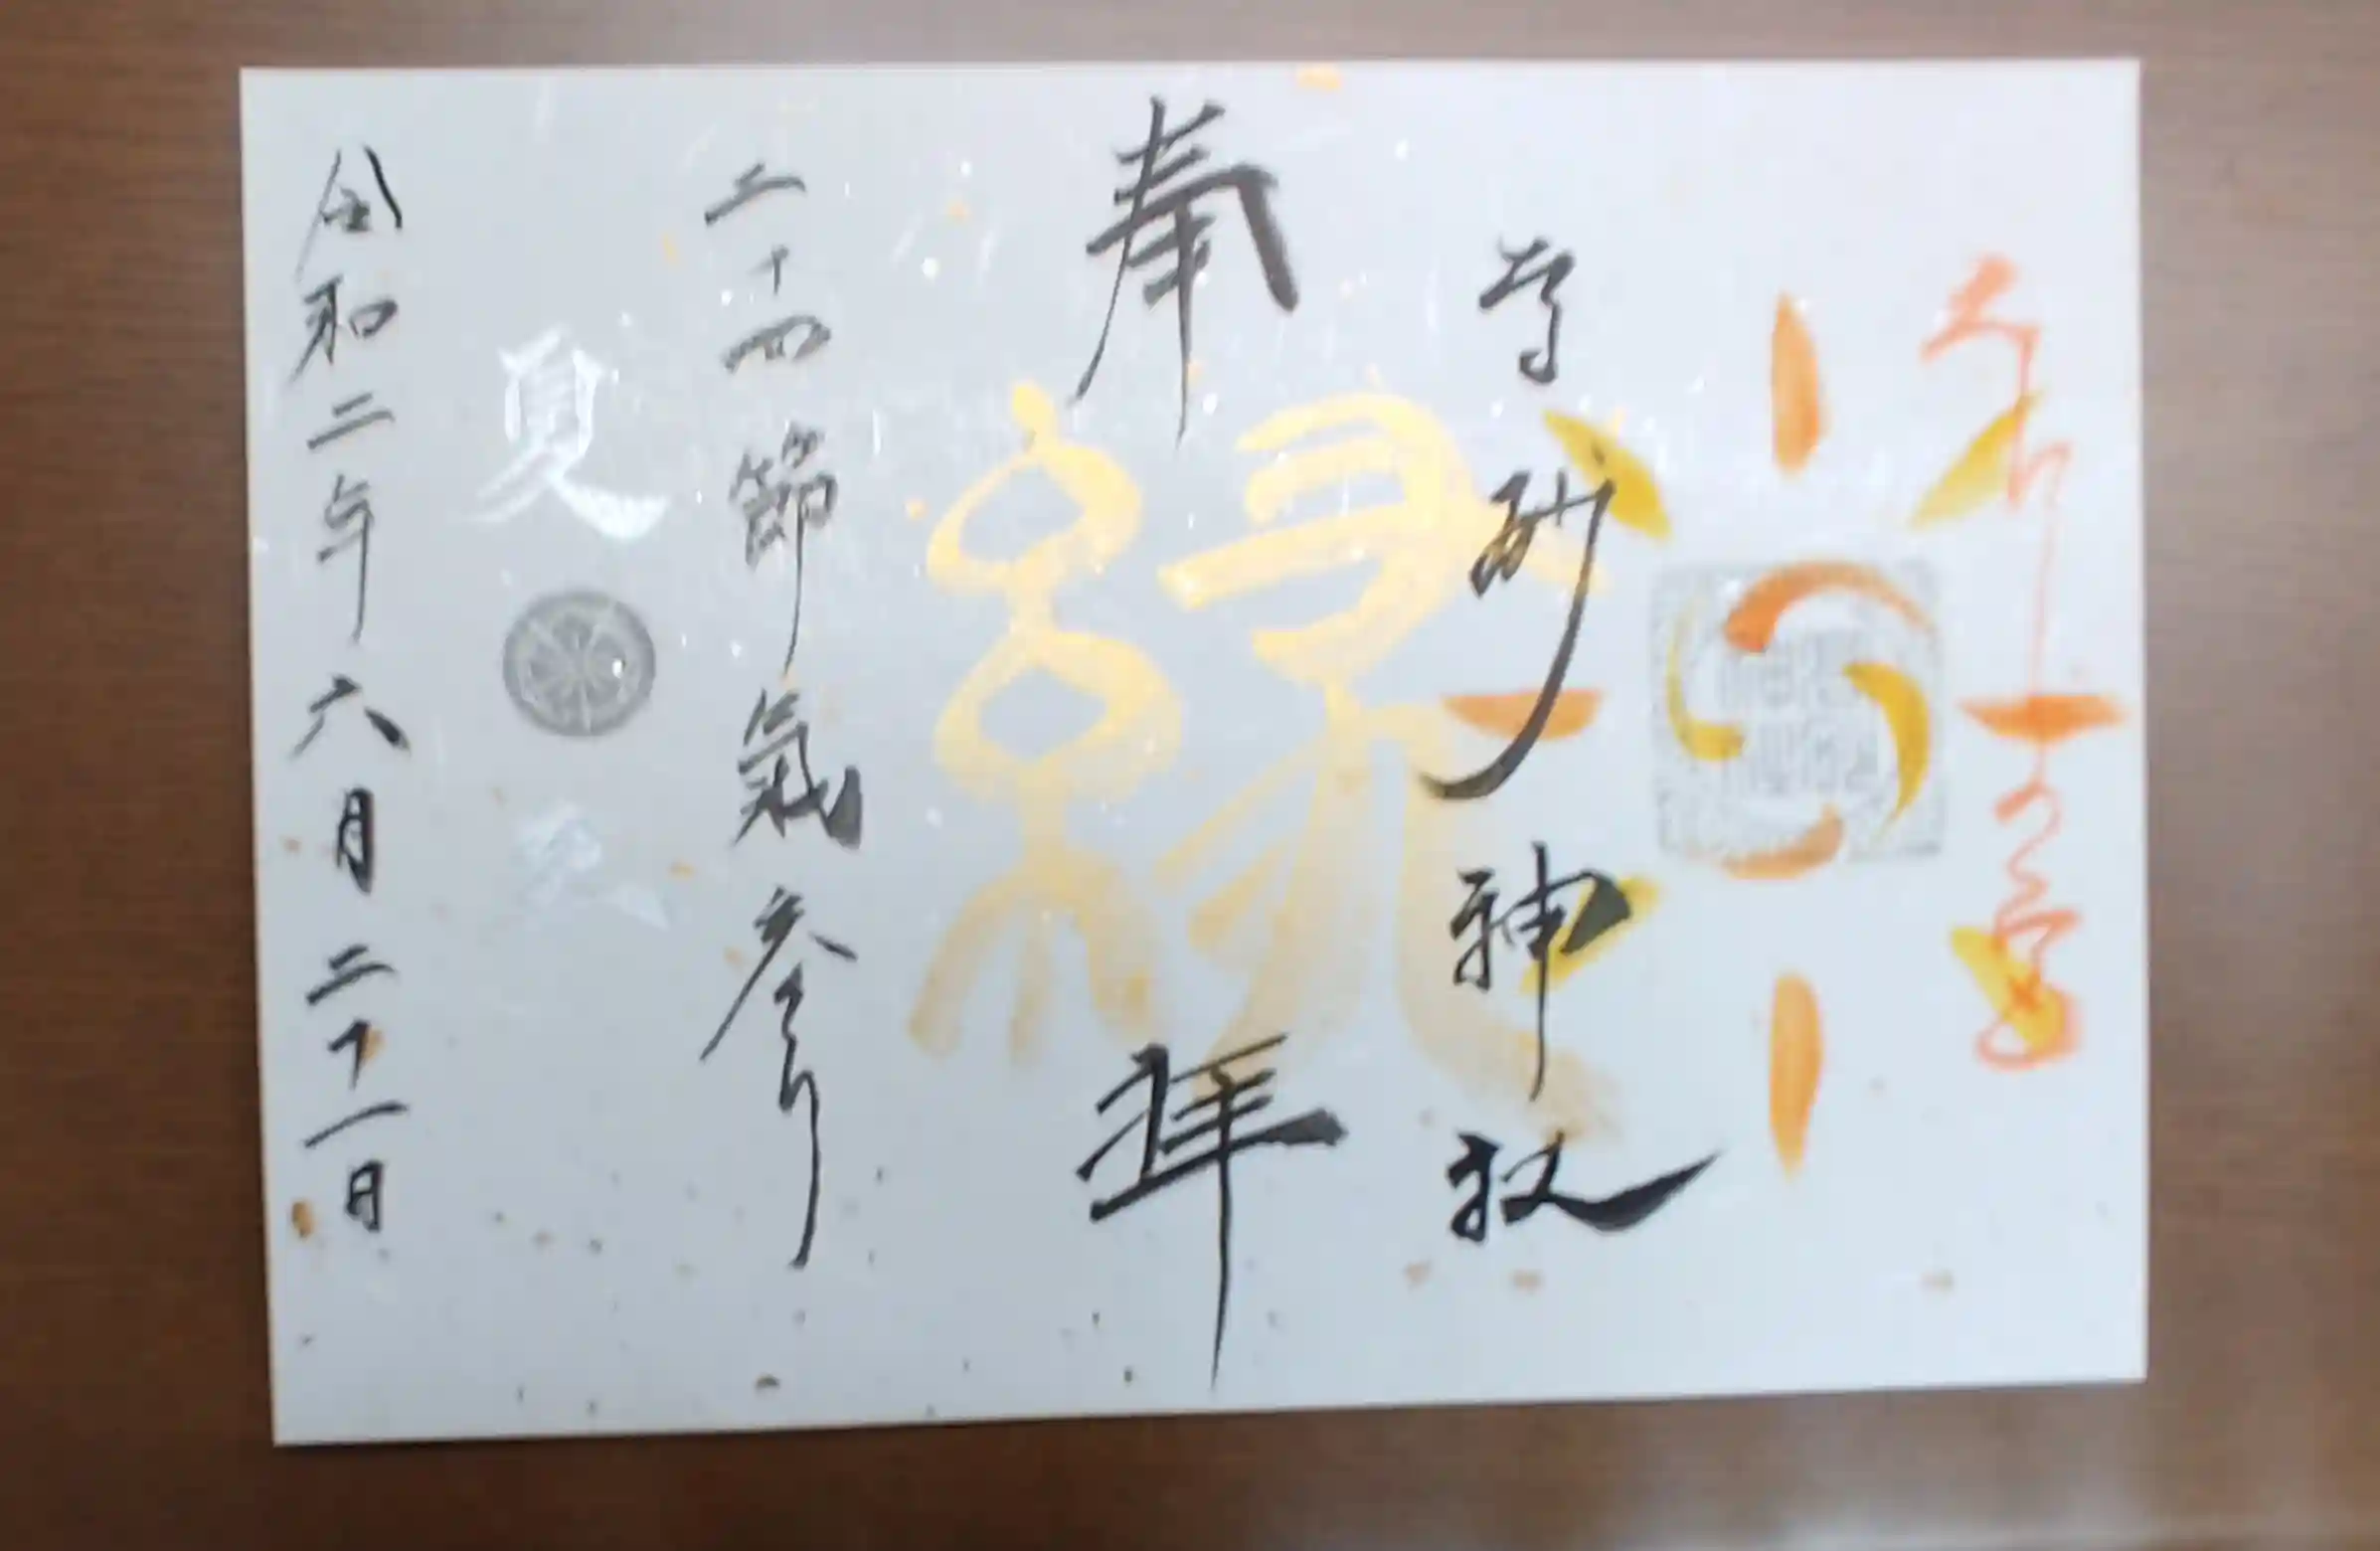 高砂神社
奉拝
縁
二十四節氣参り
夏至
令和二年六月二十一日